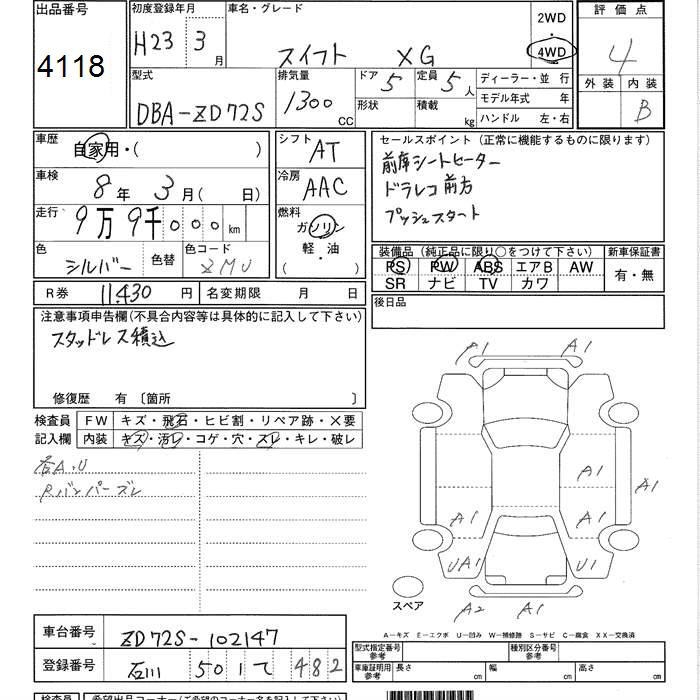 出品番号 初度登録年月 車名・グレード 2WD 評価点
4118 H23 3月 スイフト XG 4WD 4
型式 排気量 ドア 5 定員 5人 ディーラー・並行 外装 内装
DBA-ZD72S 1300CC 形状 積載 kg モデル年式 年 B
ハンドル 左・右
車歴 自家用・( ) シフト AT セールスポイント (正常に機能するものに限ります)
前席シートヒーター
車検 8年 3月(日) 冷房 AAC ドラレコ前方
走行 9万9千000km 燃料 ガソリン プッシュスタート
軽・油
( )
色 シルバー 色替 色コード ZMU 装備品 (純正品に限り○をつけて下さい) 新車保証書
PS PW ABS エアB AW 有・無
SR ナビ TV カワ
R券 11,430円 名変期限 月 日 後日品
注意事項申告欄(不具合内容等は具体的に記入して下さい)
スタッドレス積込
修復歴 有〔箇所 〕
検査員 FW キズ・飛石・ヒビ割・リペア跡・×要
記入欄 内装 キズ・汚レ・コゲ・穴・スレ・キレ・破レ
各A.U
Rバンパーズレ
A1 A1
A1 A1
A1 A1
UA1 U1
A2 A1
スペア
A-キズ E-エクボ U-凹み W-補修跡 S-サビ C-腐食 XX-交換済
車台番号 ZD72S-102147
登録番号 石川 501 て 482
型式指定番号 参考 種類区分番号 参考
車庫証明用 参考 長さ cm 幅 cm 高さ cm
検査員 希望出品コーナー(ご希望のコーナー名